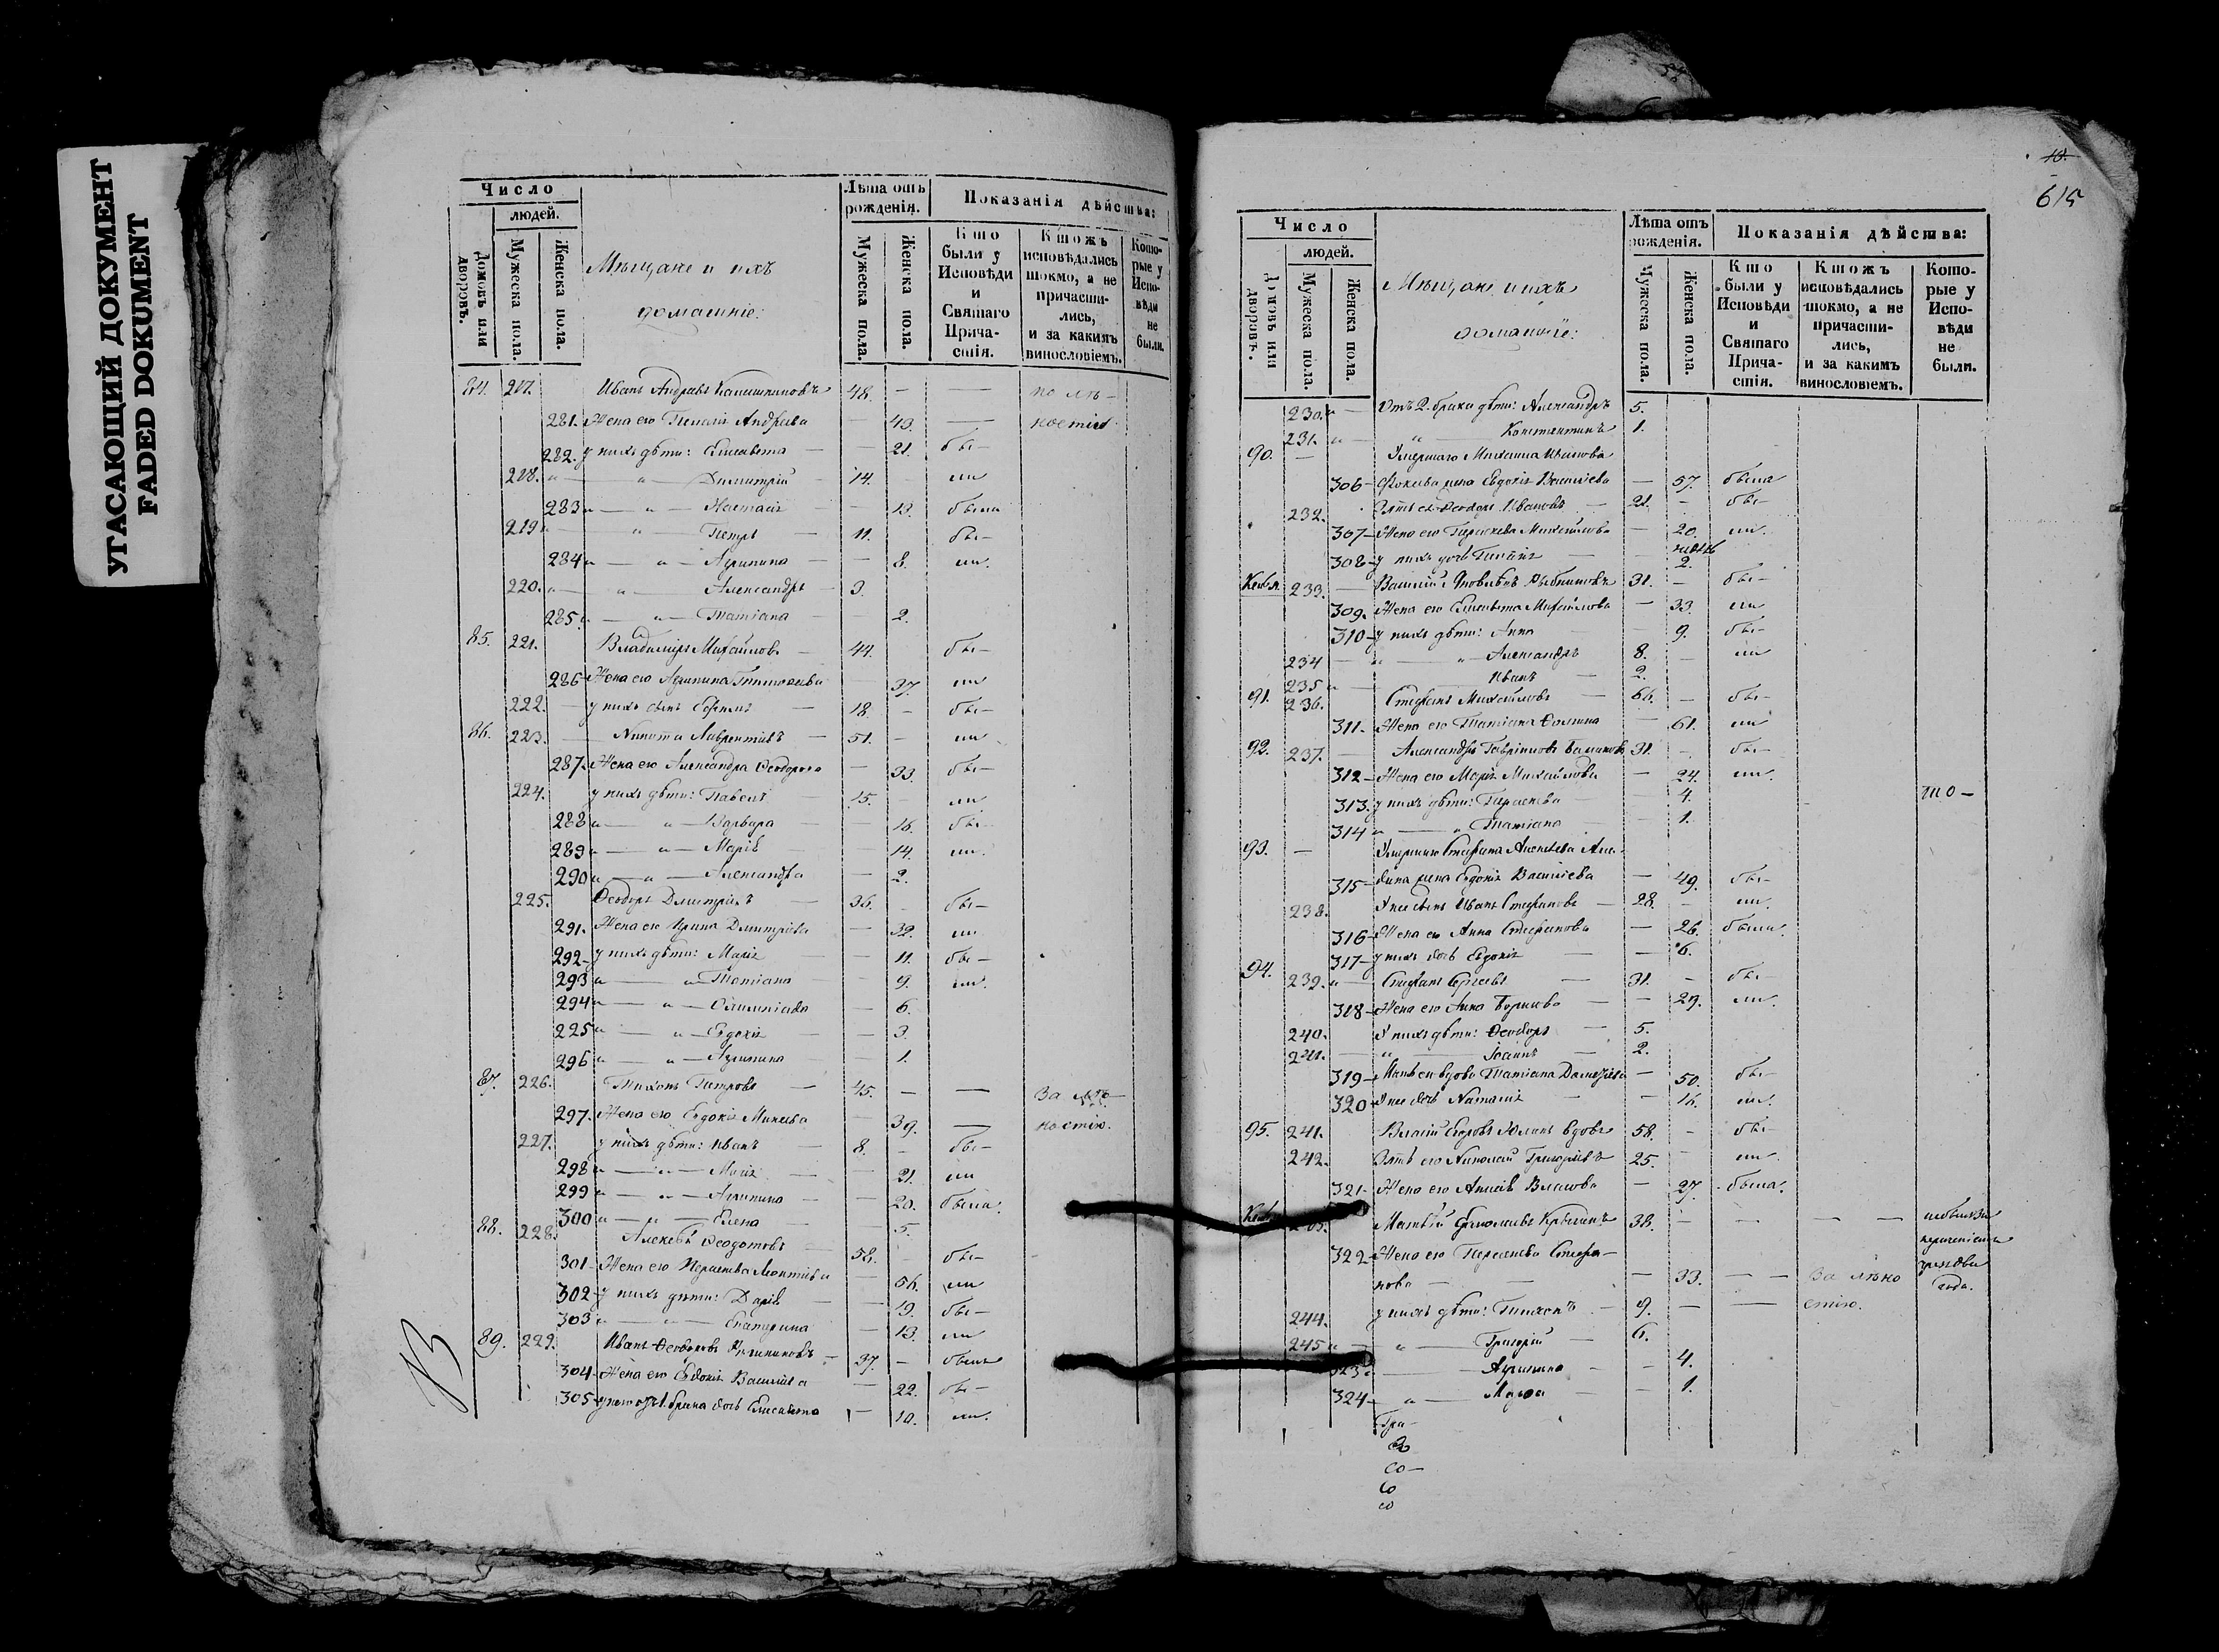 УГАСАЮЩИЙ ДОКУМЕНТ
FADED DOKUMENT
Число
людей.
Домовъ или дворовъ.
Мужеска пола.
Женска пола.
Мѣщане и ихъ
домашніе:
Лѣта отъ рожденія.
Мужеска пола.
Женска пола.
Показанія дѣйства:
Кто были у Исповѣди и Святаго Прича-стія.
Ктожъ исповѣдались токмо, а не причасти-лись, и за какимъ винословіемъ.
Кото-рые у Испо-вѣди не были.
84. 217. Иванъ Андреевъ 48. — — по лѣ-
281. Жена его Пелагія Андреева — 43. — ностію
282. у нихъ дѣти: Елисавета — 21. бы-
218. " — " — Димитрій 14. ли
283 " — " — Наталія — 13. была
219 " — " — Петръ — 11. бы-
284 " — " — Агрипина — 8. ли.
220. " — " — Александръ — 3.
285. " — " — Татіана — 2.
85. 221. Владимиръ Михайловъ — 44. бы-
286 Жена его Агрипина Тимофеева — 37. ли
222. — у нихъ сынъ Ефимъ — 18. — бы-
86. 223. — Никита Лаврентіевъ — 51. — ли
287. Жена его Александра Ѳеодорова — 33. бы-
224. у нихъ дѣти: Павелъ 15. — ли
288 " — " — Варвара — 16. бы-
289 " — " — Марія — 14. ли.
290 " — " — Александра — 2.
225. Ѳеодоръ Дмитріевъ — 36. — бы-
291. Жена его Ирина Дмитріева — 32. ли
292 - у нихъ дѣти: Марія — 11. бы-
293 " — " — Татіана — 9. ли.
294 " — " — Олимпіада — 6.
225 " — " — Евдокія — 3.
296 " — " — Агрипина — 1.
87. 226. Тихонъ Петровъ — 45. — — За лѣ-
297. Жена его Евдокія Минаева — 39. — ностію.
227. у нихъ дѣти: Иванъ — 8. — бы-
298 " — " — Марія — 21. ли
299 " — " — Агрипина — 20. была.
300 " — " — Елена — 5.
88. 228. Алексѣй Ѳеодотовъ — 58. — бы-
301 - Жена его Параскева Леонтіева — 56. ли
302 - у нихъ дѣти: Дарія — 19. бы-
303 " — " — Екатерина — 13. ли
89. 229. Иванъ Ѳеодоровъ 37. — былъ
304 - Жена его Евдокія Василіева — 22. бы-
305 - у него отъ 1. брака дочь Елисавета — 10. ли.
10.
615
Число
людей.
Домовъ или дворовъ.
Мужеска пола.
Женска пола.
Мѣщане и ихъ
домашніе:
Лѣта отъ рожденія.
Мужеска пола.
Женска пола.
Показанія дѣйства:
Кто были у Исповѣди и Святаго Прича-стія.
Ктожъ исповѣдались токмо, а не причасти-лись, и за какимъ винословіемъ.
Кото-рые у Испо-вѣди не были.
230. " — Отъ 2. брака дѣти: Александръ 5.
231. " — " Константинъ 1.
90. — Умершаго Михаила Иванова
306 - жена Евдокія Василіева — 57. была
232. Зять ея Ѳеодоръ Ивановъ 21. — бы-
307 - Жена его Параскева Михайлова — 20. ли.
308 - у нихъ дочь — 2.
233. — Василій Яковлевъ 31. — бы-
309. Жена его Елисавета Михайлова — 33. ли
310 - у нихъ дѣти: Анна — 9. бы-
234 — " — " Александръ 8. — ли
235 " — Иванъ — 2.
91. 236. Стефанъ Михайловъ — 66. — бы-
311. - Жена его Татіана Ѳомина — 61. ли
92. 237. — Александръ Гавриловъ 31. — бы-
312 - Жена его Марія Михайлова — 24. ли.
313. у нихъ дѣти: Параскева — 4.
то -
314 " — " Татіана — 1.
93. — Умершаго Стефана Алексѣева
315 - жена Евдокія Василіева — 49. бы-
238. У нея сынъ Иванъ Стефановъ — 28. — ли.
316 - Жена его Анна Стефанова — 26. были.
317 - у нихъ дочь Евдокія — 6.
94. 239. " — Стефанъ Сергѣевъ — 31. — бы-
318 - Жена его Анна Борисова — 29. ли.
240. У нихъ дѣти: Ѳеодоръ — 5.
241. — " — Іоаннъ — 2.
319 - Мать ея вдова Татіана — 50. бы-
320 - У нея дочь Наталія — 16. ли.
95. 241. Власій Егоровъ вдовъ 58. — бы-
242. Зять его Николай Григорьевъ 25. — ли
321 - Жена его Анисія Власова — 27. была.
Матвѣй Ермолаевъ 38. — — —
322 - Жена его Параскева Стефа-
нова — — 33. — — За лѣно
года.
244. у нихъ дѣти: Тихонъ — 9. — — стію.
245 " — " Григорій — 6.
323 " — Агрипина — 4.
324 - " — Марѳа — 1.
Гра-